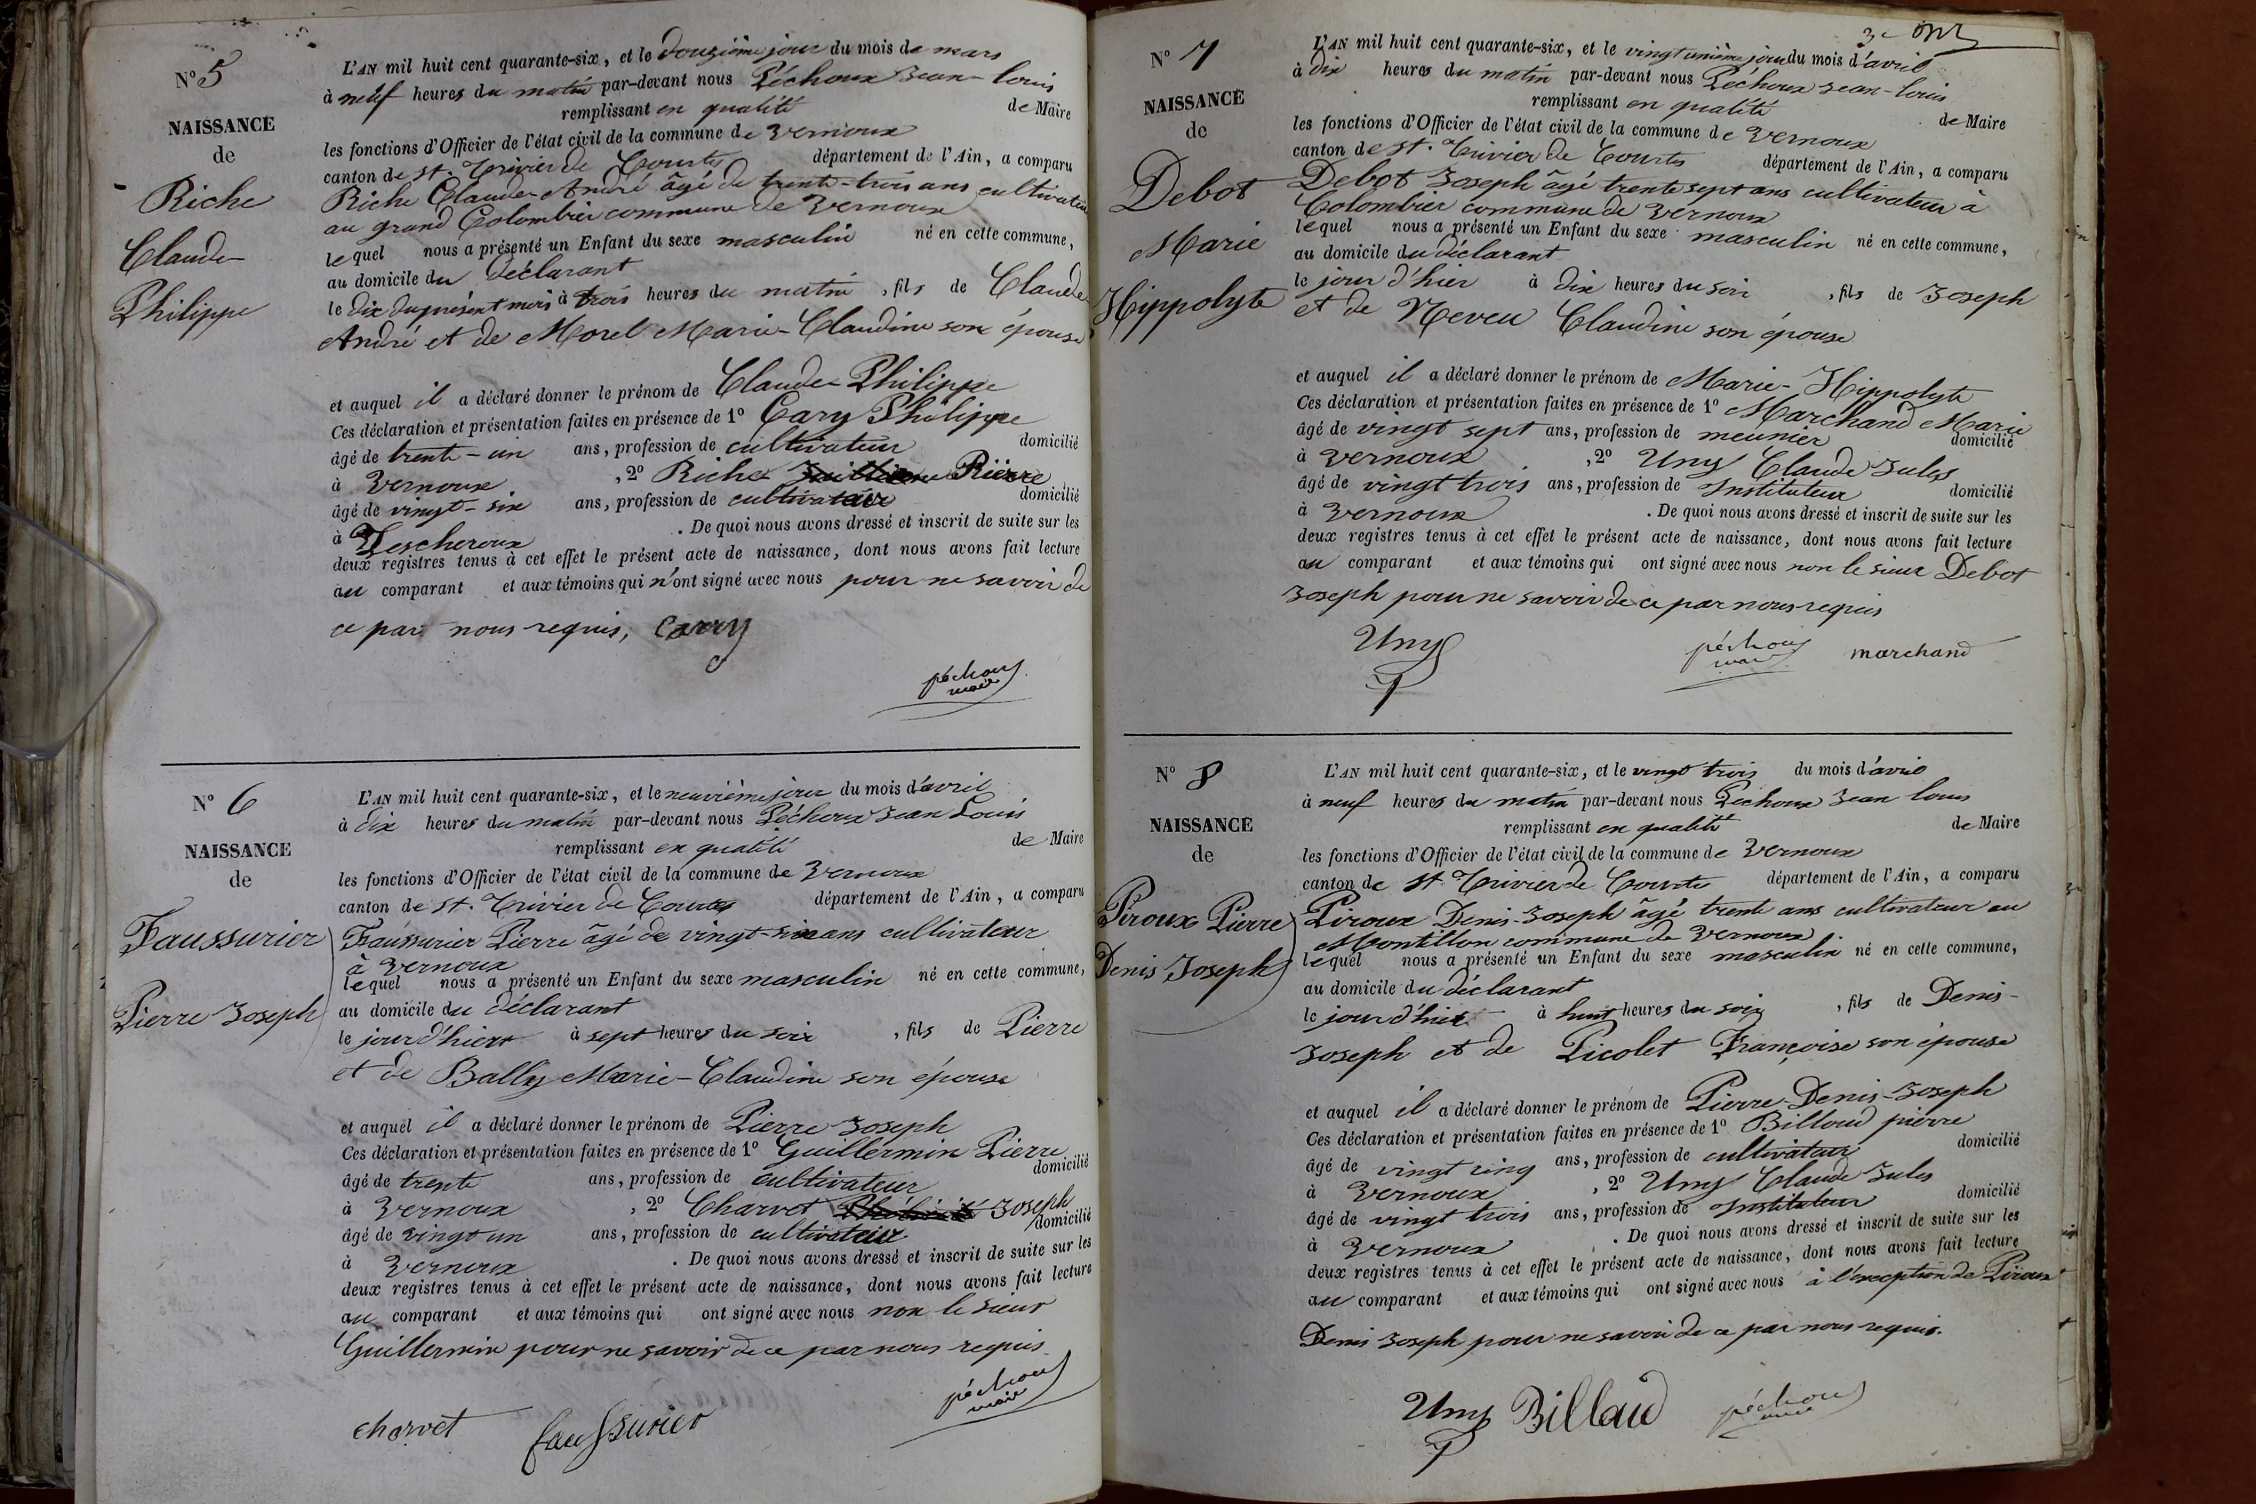 N° 5
NAISSANCE
de
Riche
Claude
Philippe
L'AN mil huit cent quarante-six, et le douzième jour du mois de mars
à neuf heures du matin par-devant nous Péchoux Jean-Louis
remplissant en qualité de Maire
les fonctions d'Officier de l'état civil de la commune de Vernoux
canton de St. Trivier de Courtes département de l'Ain, a comparu
Riche Claude-André âgé de trente-trois ans cultivateur
au grand Colombier commune de Vernoux
lequel nous a présenté un Enfant du sexe masculin né en cette commune,
au domicile du déclarant
le dix du présent mois à trois heures du matin, fils de Claude
André et de Morel Marie-Claudine son épouse
et auquel il a déclaré donner le prénom de Claude Philippe
Ces déclaration et présentation faites en présence de 1° Cary Philippe
âgé de trente-un ans, profession de cultivateur domicilié
à Vernoux, 2° Riche Pierre
âgé de vingt-six ans, profession de cultivateur domicilié
à Lescheroux. De quoi nous avons dressé et inscrit de suite sur les
deux registres tenus à cet effet le présent acte de naissance, dont nous avons fait lecture
au comparant et aux témoins qui n'ont signé avec nous pour ne savoir de
ce par nous requis, Carry
péchoux
maire
N° 6
NAISSANCE
de
Faussurier
Pierre Joseph
L'AN mil huit cent quarante-six, et le neuvième jour du mois d'avril
à dix heures du matin par-devant nous Péchoux Jean Louis
remplissant en qualité de Maire
les fonctions d'Officier de l'état civil de la commune de Vernoux
canton de St. Trivier de Courtes département de l'Ain, a comparu
Faussurier Pierre âgé de vingt-six ans cultivateur
à Vernoux
lequel nous a présenté un Enfant du sexe masculin né en cette commune,
au domicile du déclarant
le jour d'hier à sept heures du soir, fils de Pierre
et de Bally Marie-Claudine son épouse
et auquel il a déclaré donner le prénom de Pierre Joseph
Ces déclaration et présentation faites en présence de 1° Guillermin Pierre
âgé de trente ans, profession de cultivateur domicilié
à Vernoux, 2° Charvet Joseph
âgé de vingt un ans, profession de cultivateur domicilié
à Vernoux. De quoi nous avons dressé et inscrit de suite sur les
deux registres tenus à cet effet le présent acte de naissance, dont nous avons fait lecture
au comparant et aux témoins qui ont signé avec nous non le sieur
Guillermin pour ne savoir de ce par nous requis
péchoux
maire
charvet faussurier
N° 7
NAISSANCE
de
Debot
Marie
Hippolyte
L'AN mil huit cent quarante-six, et le vingt unième jour du mois d'avril
à dix heures du matin par-devant nous Péchoux Jean-Louis
remplissant en qualité de Maire
les fonctions d'Officier de l'état civil de la commune de Vernoux
canton de St. Trivier de Courtes département de l'Ain, a comparu
Debot Joseph âgé trente sept ans cultivateur à
Colombier commune de Vernoux
lequel nous a présenté un Enfant du sexe masculin né en cette commune,
au domicile du déclarant
le jour d'hier à dix heures du soir, fils de Joseph
et de Neveu Claudine son épouse
et auquel il a déclaré donner le prénom de Marie-Hippolyte
Ces déclaration et présentation faites en présence de 1° Marchand Marie
âgé de vingt sept ans, profession de meunier domicilié
à Vernoux, 2° Uny Claude Jules
âgé de vingt trois ans, profession de Instituteur domicilié
à Vernoux. De quoi nous avons dressé et inscrit de suite sur les
deux registres tenus à cet effet le présent acte de naissance, dont nous avons fait lecture
au comparant et aux témoins qui ont signé avec nous non le sieur Debot
Joseph pour ne savoir de ce par nous requis
Uny péchoux marchand
maire
N° 8
NAISSANCE
de
Piroux Pierre
Denis Joseph
L'AN mil huit cent quarante-six, et le vingt trois du mois d'avril
à neuf heures du matin par-devant nous Péchoux Jean Louis
remplissant en qualité de Maire
les fonctions d'Officier de l'état civil de la commune de Vernoux
canton de St. Trivier de Courtes département de l'Ain, a comparu
Piroux Denis-Joseph âgé trente ans cultivateur au
Montillon commune de Vernoux
lequel nous a présenté un Enfant du sexe masculin né en cette commune,
au domicile du déclarant
le jour d'hier à huit heures du soir, fils de Denis-
Joseph et de Picolet Françoise son épouse
et auquel il a déclaré donner le prénom de Pierre-Denis-Joseph
Ces déclaration et présentation faites en présence de 1° Billoud pierre
âgé de vingt cinq ans, profession de cultivateur domicilié
à Vernoux, 2° Uny Claude Jules
âgé de vingt trois ans, profession de Instituteur domicilié
à Vernoux. De quoi nous avons dressé et inscrit de suite sur les
deux registres tenus à cet effet le présent acte de naissance, dont nous avons fait lecture
au comparant et aux témoins qui ont signé avec nous à l'exception de Piroux
Denis Joseph pour ne savoir de ce par nous requis.
Uny Billoud péchoux
maire